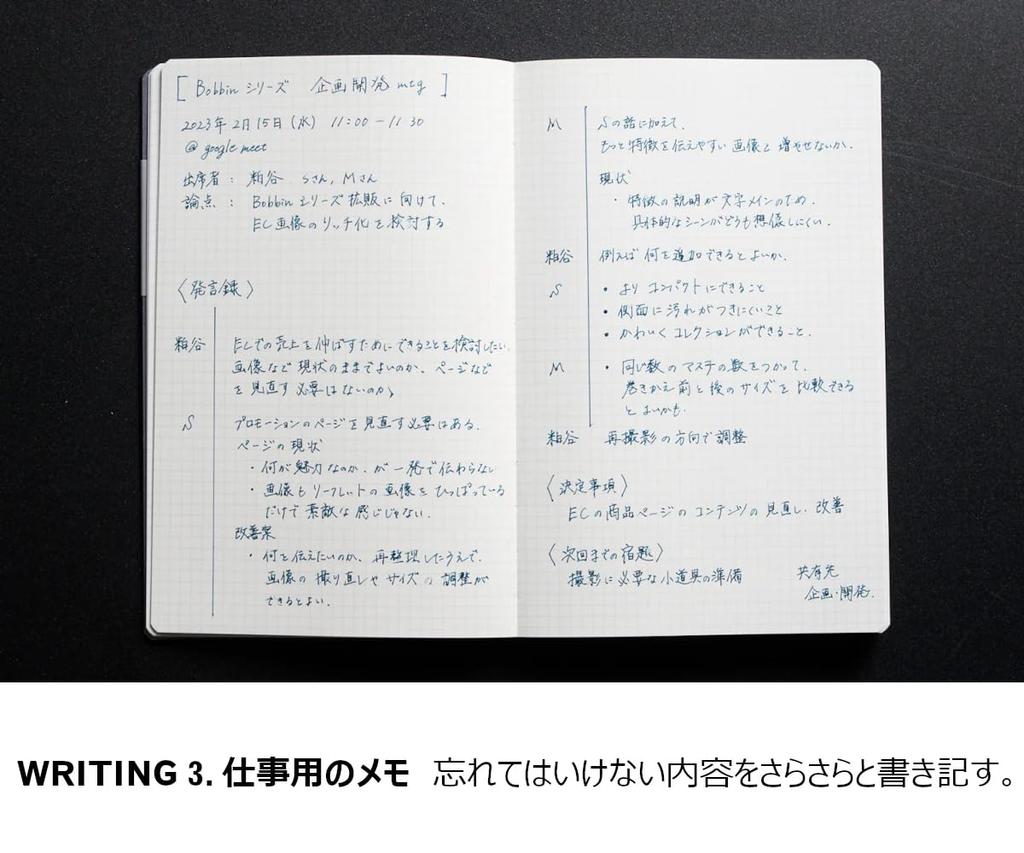 [ Bobbin シリーズ 企画開発 mtg ]
2023年2月15日(水) 11:00-11:30
@ google meet
出席者: 粕谷 Sさん, Mさん
論点: Bobbinシリーズ拡販に向けて、
EC画像のリッチ化を検討する
〈発言録〉
粕谷 ECでの売上を伸ばすためにできることを検討したい。
画像など現状のままでよいのか、ページなど
を見直す必要はないのか。
S プロモーションのページを見直す必要はある。
ページの現状
・何が魅力なのか、が一発で伝わらない
・画像もリーフレットの画像をひっぱっている
だけで素敵な感じじゃない。
改善案
・何を伝えたいのか、再整理したうえで、
画像の撮り直しやサイズの調整が
できるとよい。
M Sの話に加えて、
もっと特徴を伝えやすい画像を増やせないか。
現状
・特徴の説明が文字メインのため、
具体的なシーンがどうも想像しにくい。
粕谷 例えば何を追加できるとよいか。
S ・よりコンパクトにできること
・側面に汚れがつきにくいこと
・かわいくコレクションができること。
M ・同じ数のマステの数をつかって、
巻きかえ前と後のサイズを比較できる
とよいかも。
粕谷 再撮影の方向で調整
〈決定事項〉
ECの商品ページのコンテンツの見直し、改善
〈次回までの宿題〉
撮影に必要な小道具の準備
共有先
企画・開発.
WRITING 3. 仕事用のメモ 忘れてはいけない内容をさらさらと書き記す。